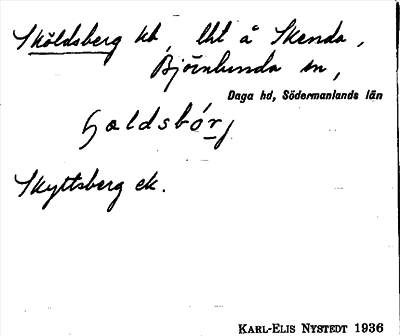 Sköldsberg hb, lht å Skenda,
Björnlunda sn,
Daga hd, Södermanlands län
Skyttsberg ek.
KARL-ELIS NYSTEDT 1936